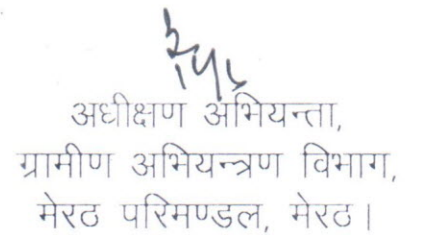 अधीक्षण अभियन्ता,
ग्रामीण अभियन्त्रण विभाग,
मेरठ परिमण्डल, मेरठ।